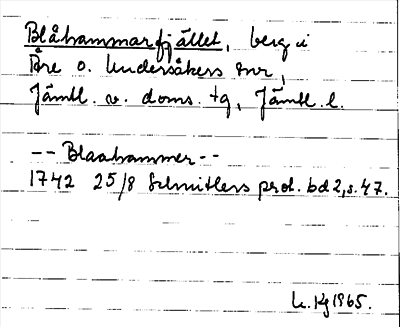 Blåhammarfjället, berg i
Åre o. Undersåkers snr,
Jämtl. v. doms. tg, Jämtl. l.
-- Blaahammer --
1742 25/8 Schnitlers prot. bd 2, s. 47.
Kg 1965.